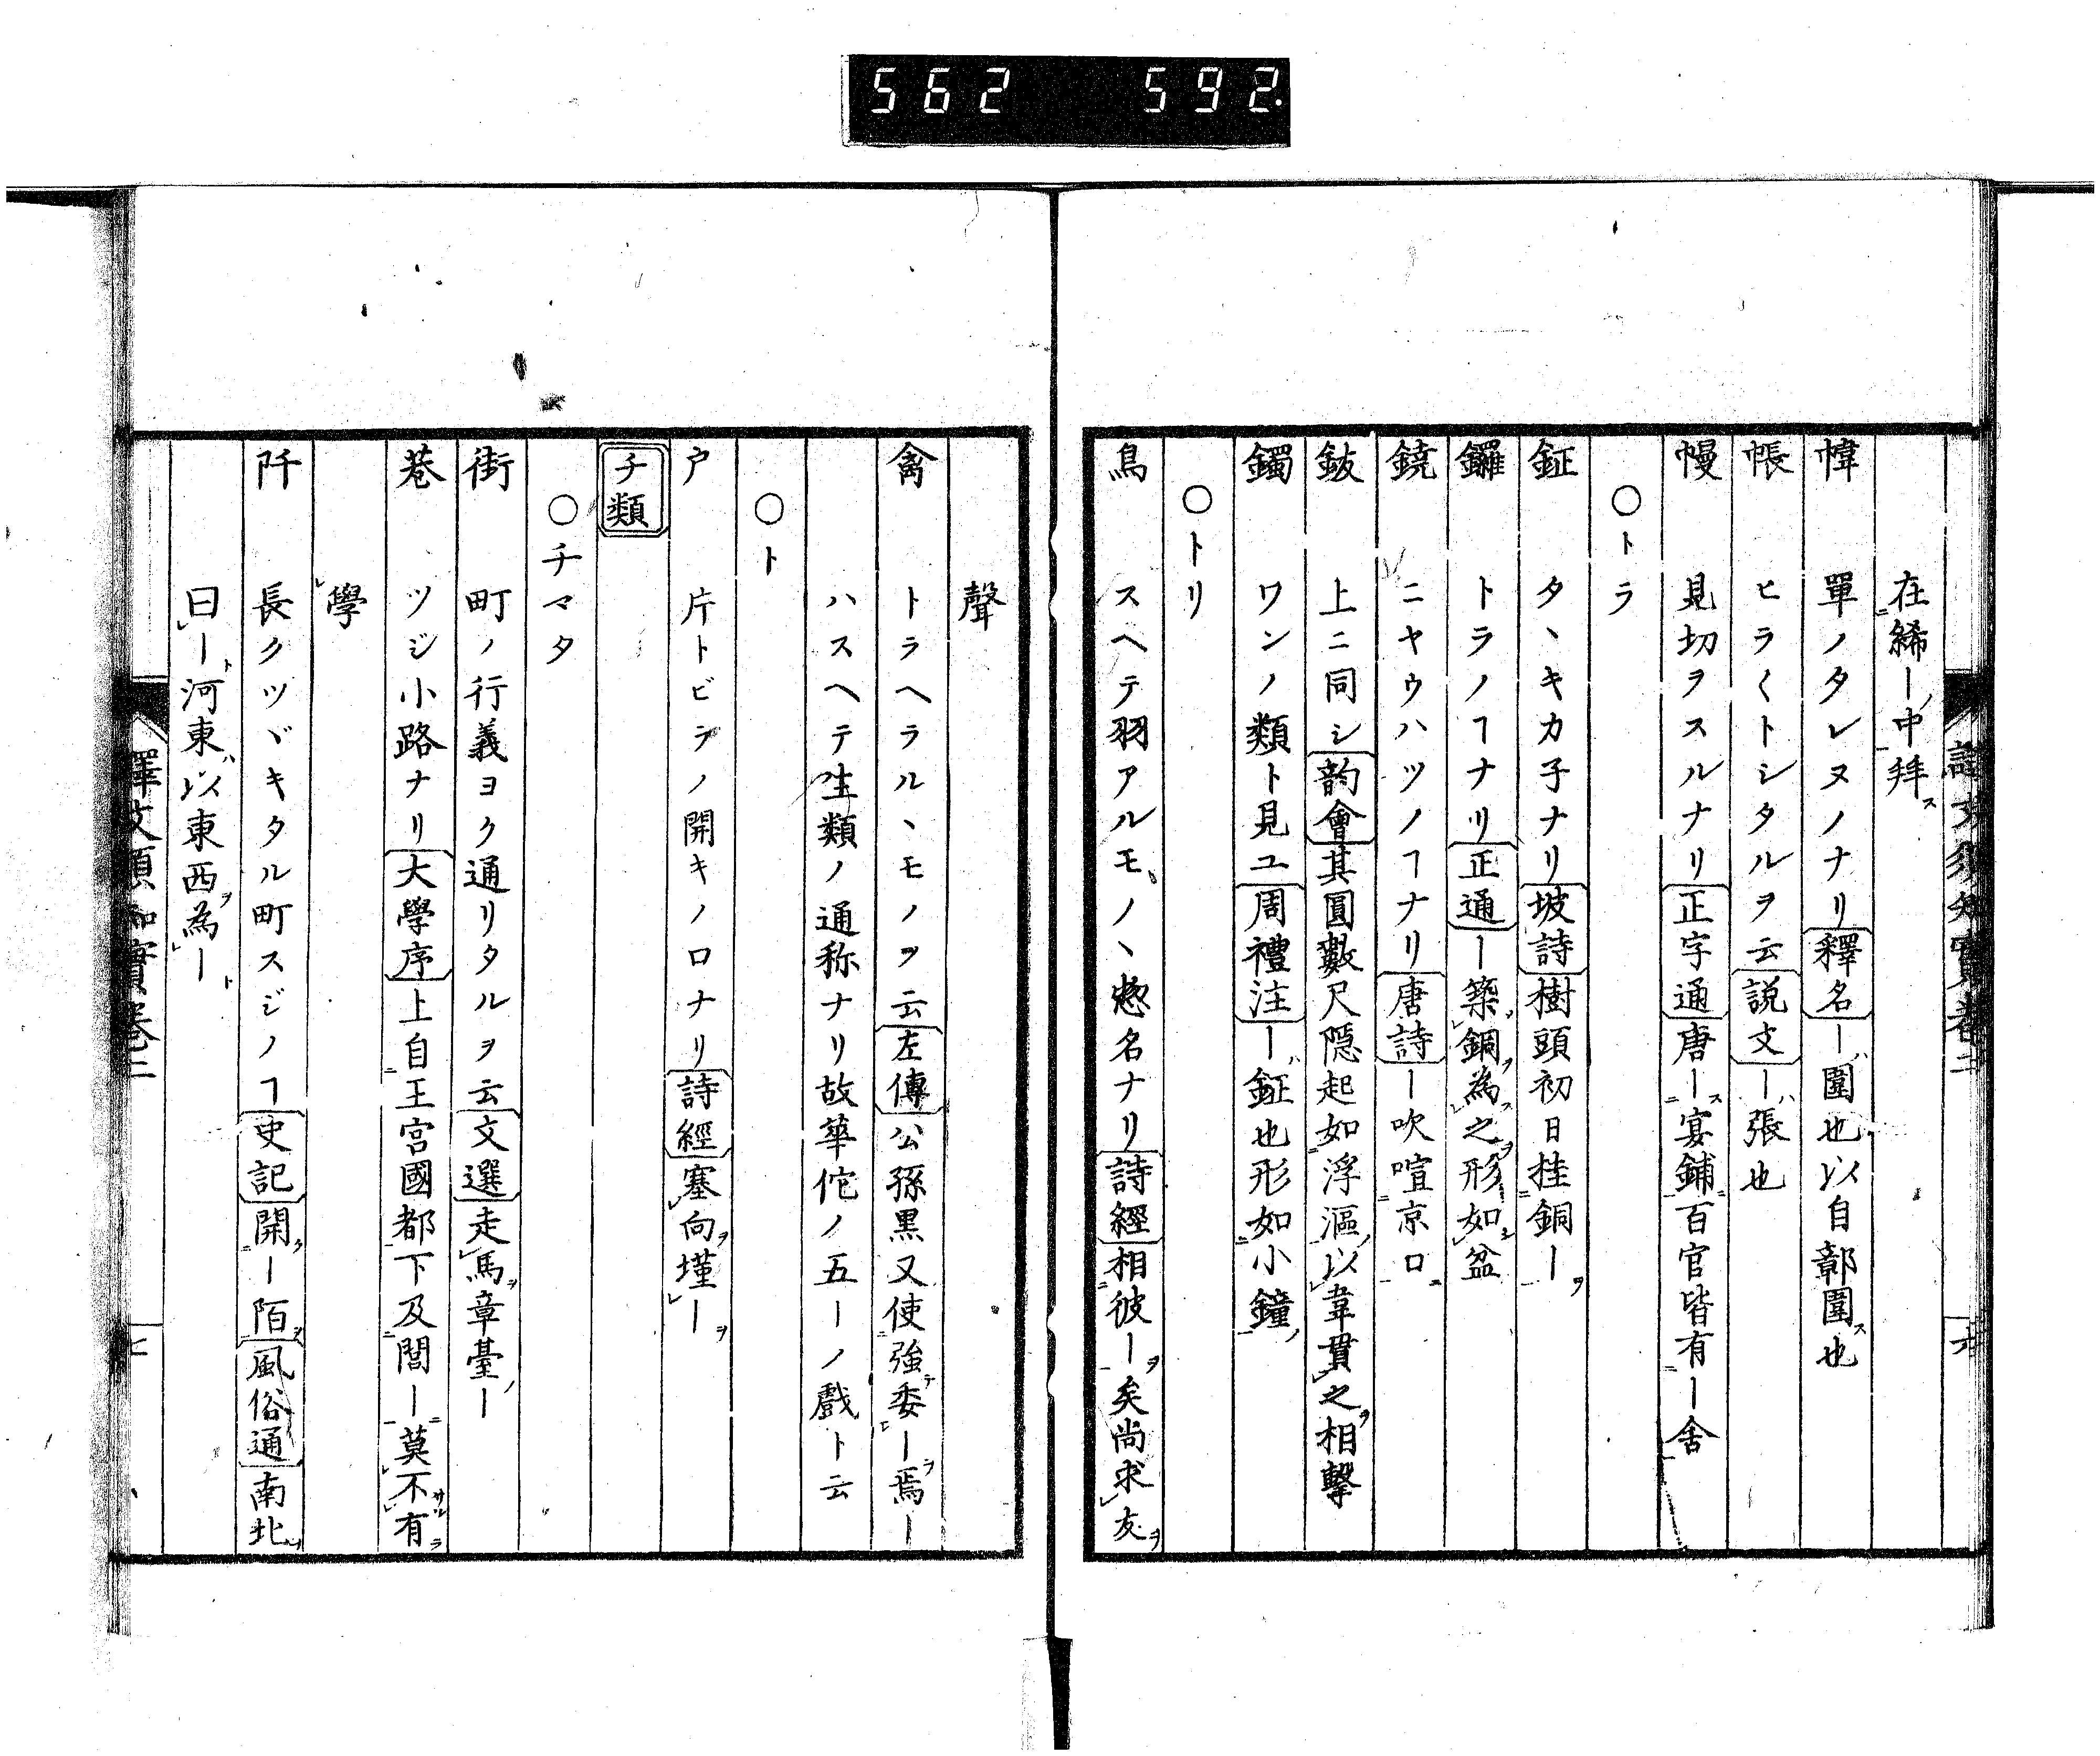 562 592.
在絺ー中拜
幃 單ノタレヌノナリ釋名ー圍也以自鄣圍也
帳 ヒラ〱トシタルヲ云説文ー張也
幔 見切ヲスルナリ正字通唐ー宴鋪百官皆有ー舍
○トラ
鉦 タヽキカ子ナリ坡詩樹頭初日挂銅ー
鑼 トラノヿナリ正通ー築銅為之形如盆
鐃 ニヤウハツノヿナリ唐詩ー吹喧京口
鈸 上ニ同シ韵會其圓數尺隠起如浮漚以韋貫之相擊
鐲 ワンノ類ト見ユ周禮注ー鉦也形如小鐘
○トリ
鳥 スヘテ羽アルモノヽ惣名ナリ詩經相彼ー矣尚求友
聲
禽 トラヘラルヽモノヲ云左傳公孫黒又使強委ー焉ー
ハスヘテ生類ノ通称ナリ故華佗ノ五ーノ戲ト云
○ト
戸 片トビラノ開キノロナリ詩經塞向墐ー
チ類
○チマタ
街 町ノ行義ヨク通リタルヲ云文選走馬章臺ー
巷 ツジ小路ナリ大學序上自王宮國都下及閭ー莫不有
學
阡 長クツヾキタル町スジノヿ史記開ー陌風俗通南北
曰ー河東以東西為ー
譯文須知實卷二
七